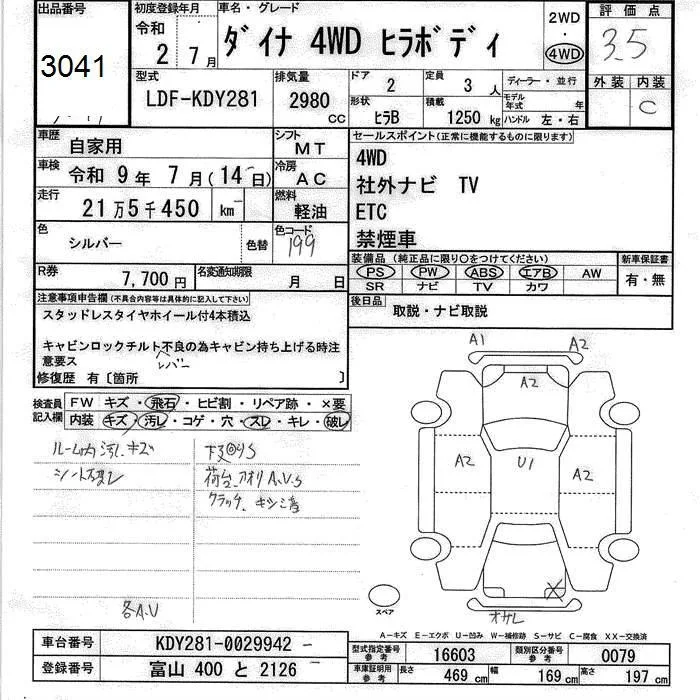 出品番号 初度登録年月 車名・グレード 評価点
3041 令和 2 7月 ダイナ 4WD ヒラボディ 2WD・4WD 3.5
型式 排気量 ドア 2 定員 3人 ディーラー・並行 外装 内装
LDF-KDY281 2980 CC 形状 ヒラB 積載 1250 kg モデル年式 年 ハンドル 左・右 C
車歴 自家用 シフト MT セールスポイント(正常に機能するものに限ります)
車検 令和 9年 7月(14日) 冷房 AC 4WD
走行 21万5千450 km 燃料 軽油 社外ナビ TV
ETC
色 シルバー 色替 色コード 199 禁煙車
装備品(純正品に限り○をつけてください) 新車保証書
R券 7,700円 名変通知期限 月 日 PS PW ABS エアB AW 有・無
SR ナビ TV カワ
注意事項申告欄(不具合内容等は具体的に記入して下さい) 後日品 取説・ナビ取説
スタッドレスタイヤホイール付4本積込
キャビンロックチルト不良の為キャビン持ち上げる時注
レバー
意要ス
修復歴 有〔箇所 〕
検査員記入欄 FW キズ・飛石・ヒビ割・リペア跡・×要
内装 キズ・汚レ・コゲ・穴・スレ・キレ・破レ
ルーム内汚レ キズ 下廻りS
シート破レ 荷台、アオリ A.U.S
クラッチ、キシミ音
各A.U
A1 A2
A2
A2 U1 A2
X
オサレ
スペア
A―キズ E―エクボ U―凹み W―補修跡 S―サビ C―腐食 XX―交換済
車台番号 KDY281-0029942 型式指定番号 参考 16603 類別区分番号 参考 0079
登録番号 富山 400 と 2126 車庫証明用 参考 長さ 469 cm 幅 169 cm 高さ 197 cm